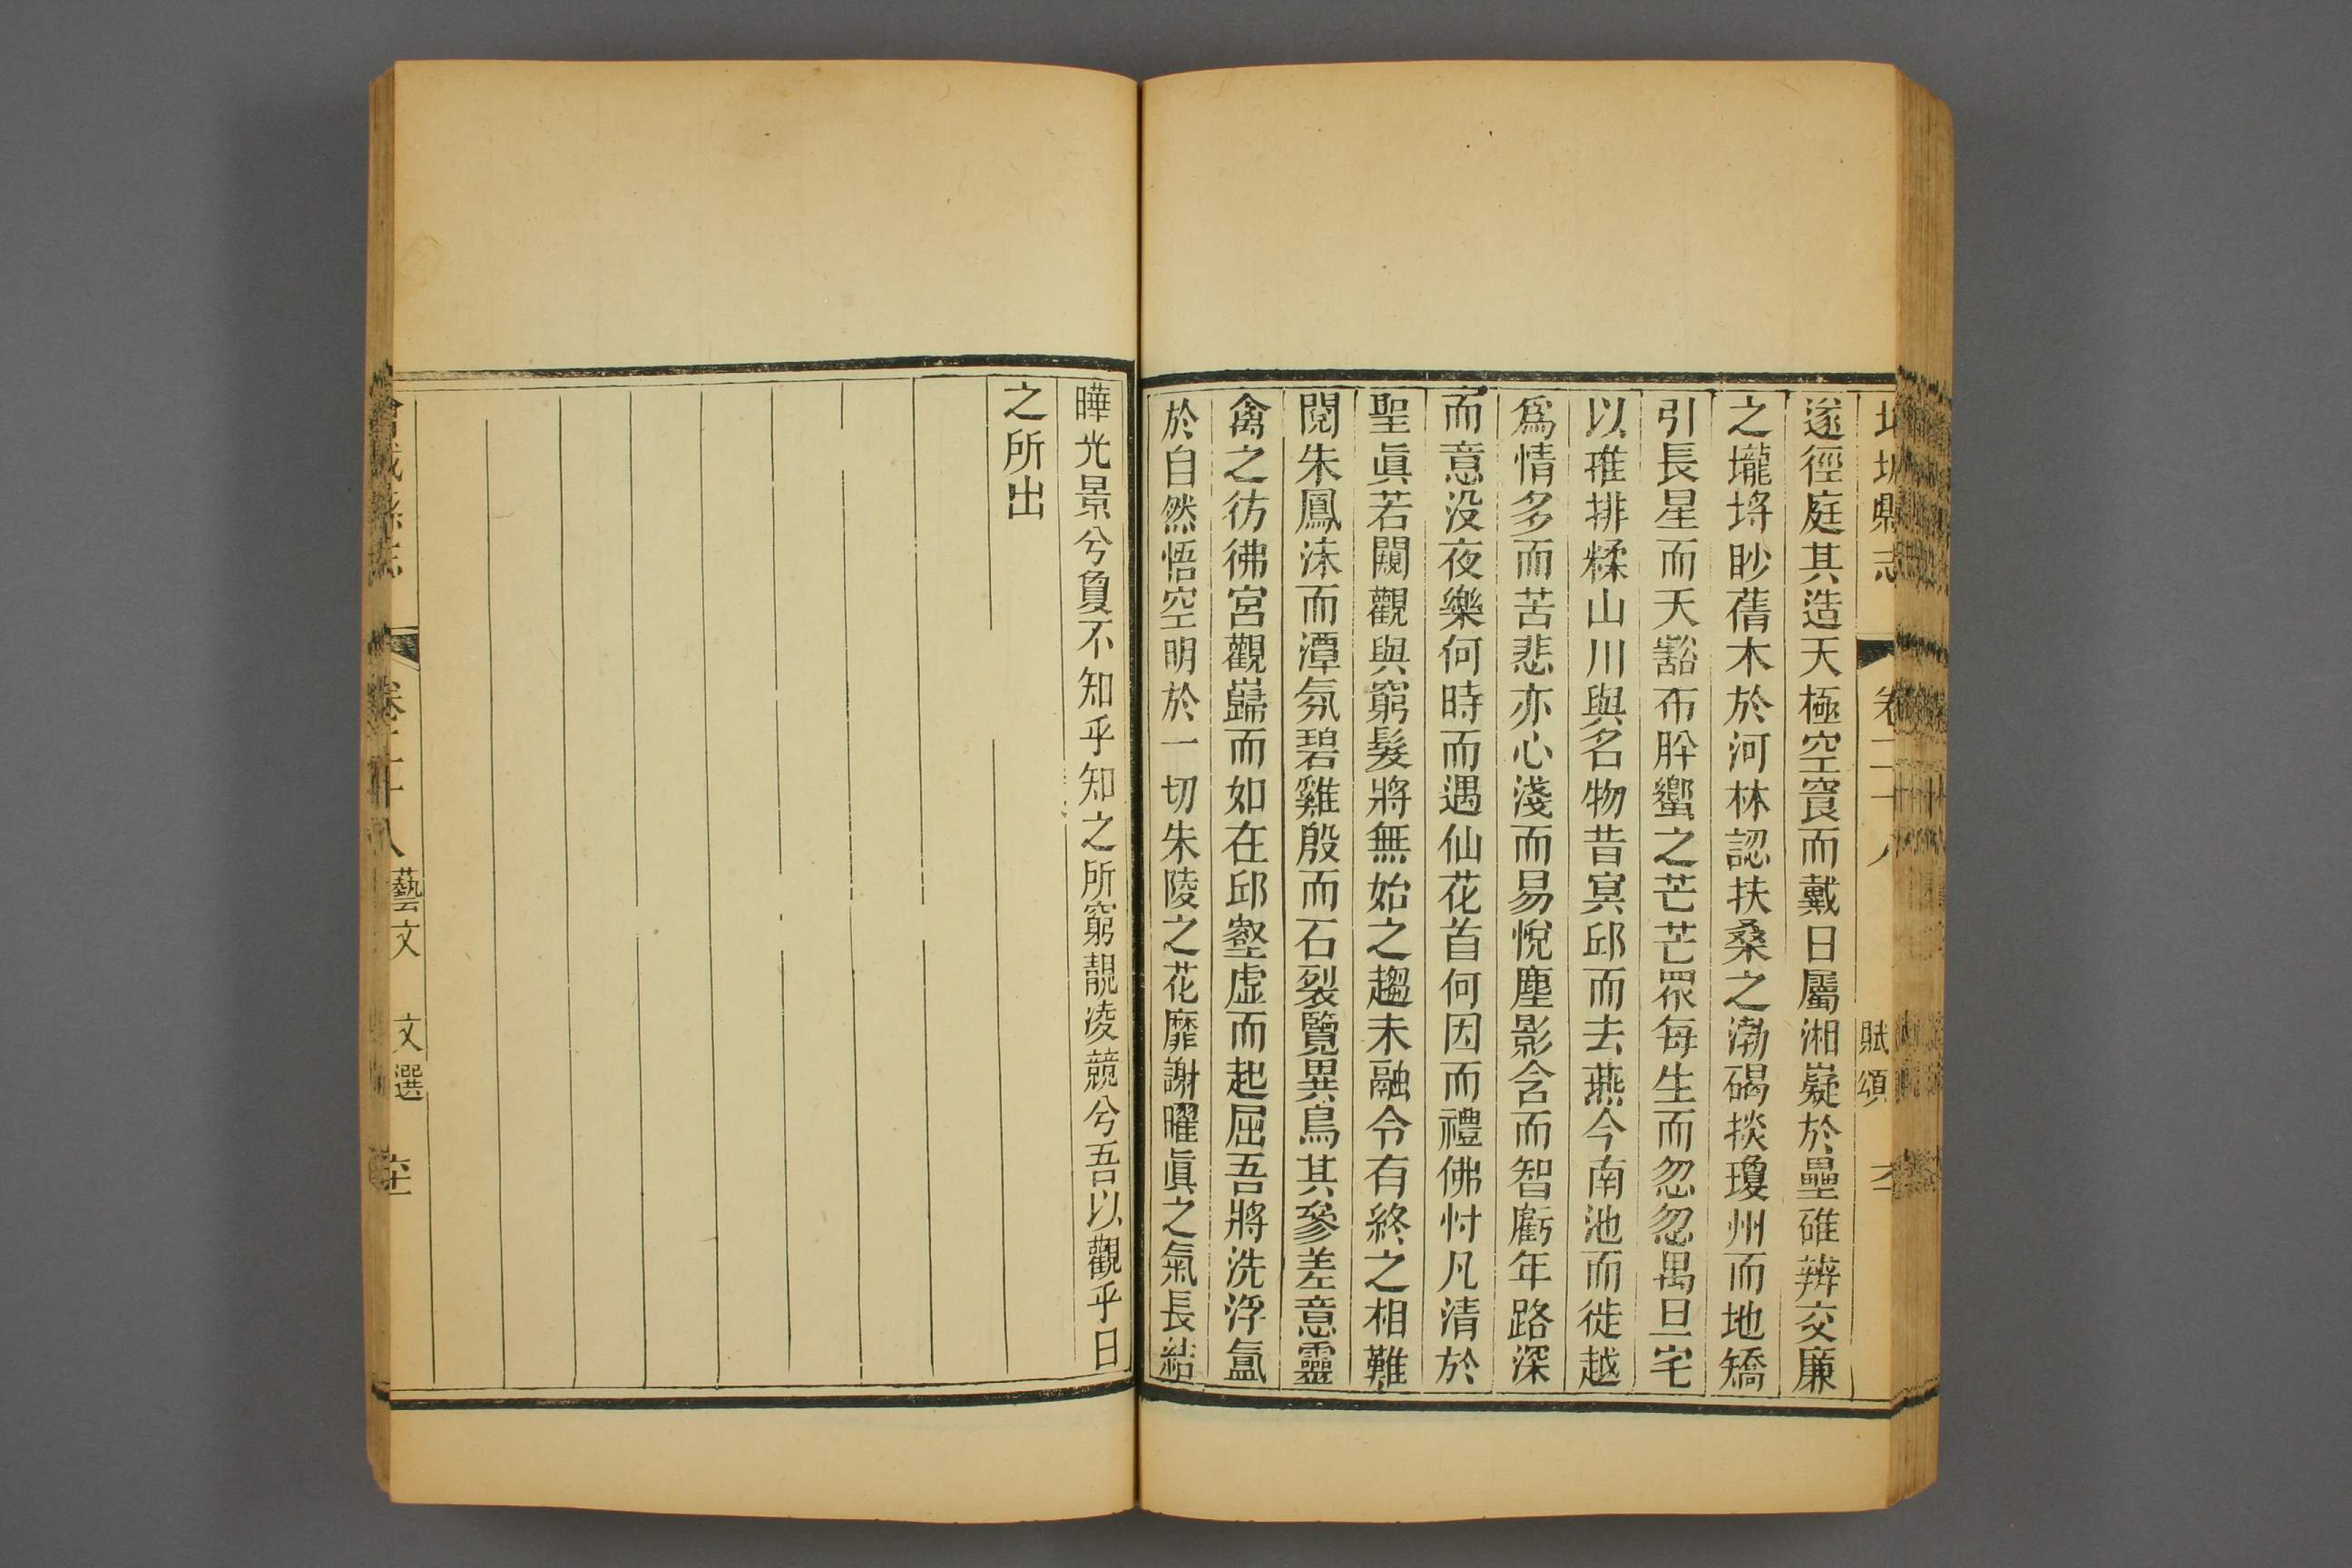 遂徑庭其造天極空窅而戴日屬湘嶷於壘碓辨交廉
之壠埓眇蒨木於河林認扶桑之渤碣掞瓊州而地矯
引長星而天豁布肸蠁之芒芒眾每生而忽忽禺旦宅
以壅排糅山川與名物昔冥邱而去燕今南池而徙越
爲情多而苦悲亦心淺而易悅塵影含而智虧年路深
而意没夜樂何時而遇仙花首何因而禮佛忖凡清於
聖眞若闚觀與窮髮將無始之趨未融令有終之相難
閱朱鳳溱而潭氛碧雞殷而石裂覽異鳥其參差意靈
禽之彷彿宮觀巋而如在邱壑虛而起屈吾將洗浮氲
於自然悟空明於一切朱陵之花靡謝曜眞之氣長結
曄光景兮夐不知乎知之所窮靚淩兢兮吾以觀乎日
之所出
卷二十八 藝文 文選
賦頌